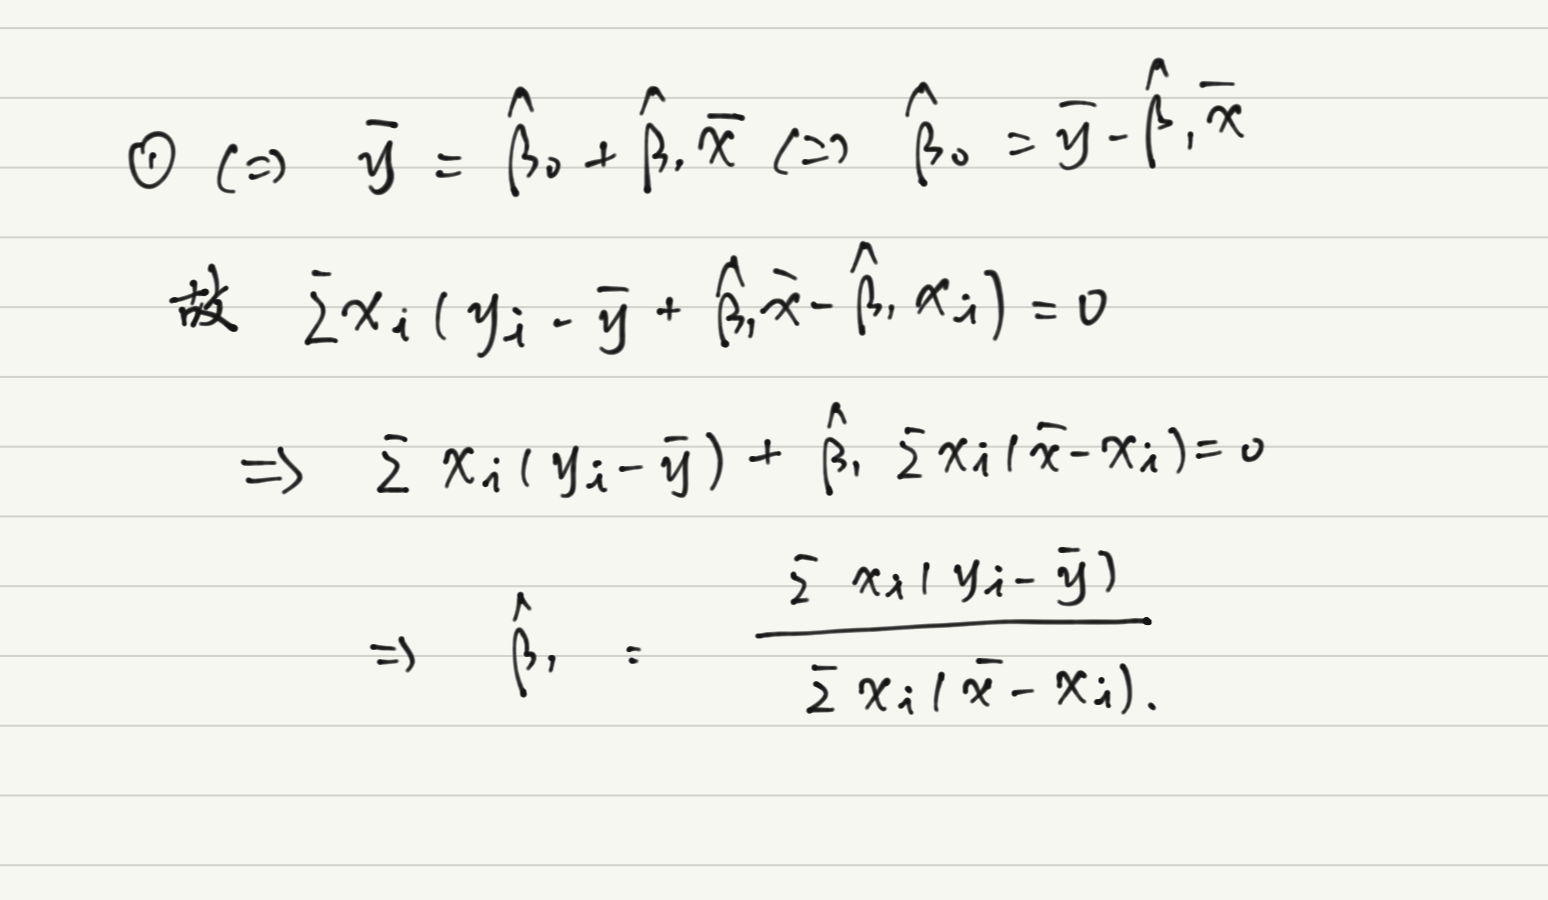 ① (=) ȳ = β̂₀ + β̂₁ x̄ (=) β̂₀ = ȳ - β̂₁ x̄
故 Σ xᵢ ( yᵢ - ȳ + β̂₁ x̄ - β̂₁ xᵢ ) = 0
=> Σ xᵢ ( yᵢ - ȳ ) + β̂₁ Σ xᵢ ( x̄ - xᵢ ) = 0
=> β̂₁ = Σ xᵢ ( yᵢ - ȳ ) / Σ xᵢ ( x̄ - xᵢ ).